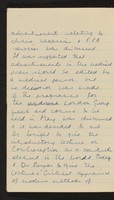 advertisement relating to
clinic sessions & F.P.A
services was discussed.
It was suggested that
advertisements in the medical
press should be edited by
a medical person, but
no decision was made.
The programme for
the London Group
meeting to be
held in May was discussed
& it was decided to ask
for to give the
introductory lecture on
Contraception as a
element in the World Today
& Dr to give the
lecture: Critical appraisal
of modern methods of